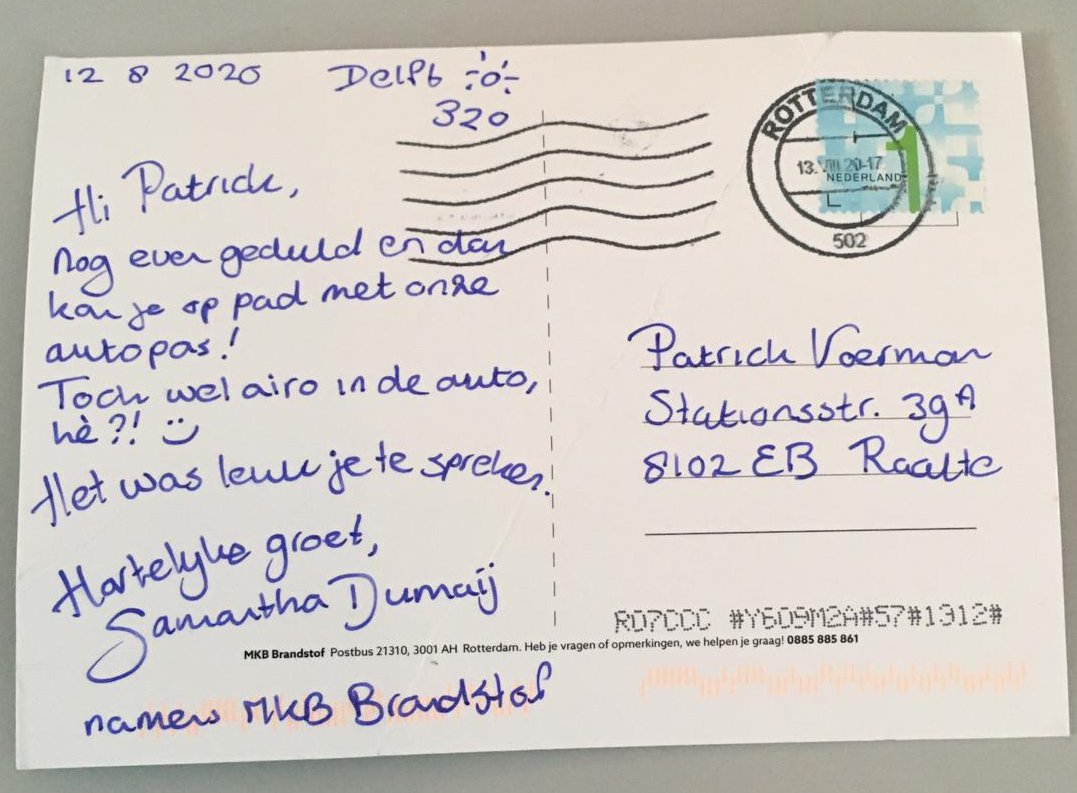 12 8 2020 Delft
32°
Hi Patrick,
nog even geduld en dan
kan je op pad met onze
autopas!
Toch wel airo in de auto,
hè?! :)
Het was leuk je te spreken.
Hartelijke groet,
Samantha Dumaij
namens MKB Brandstof
ROTTERDAM
13.VIII.20-17
NEDERLAND 1
502
Patrick Voerman
Stationsstr. 39A
8102 EB Raalte
RD7CCC #Y6D9M2A#57#1312#
MKB Brandstof Postbus 21310, 3001 AH Rotterdam. Heb je vragen of opmerkingen, we helpen je graag! 0885 885 861